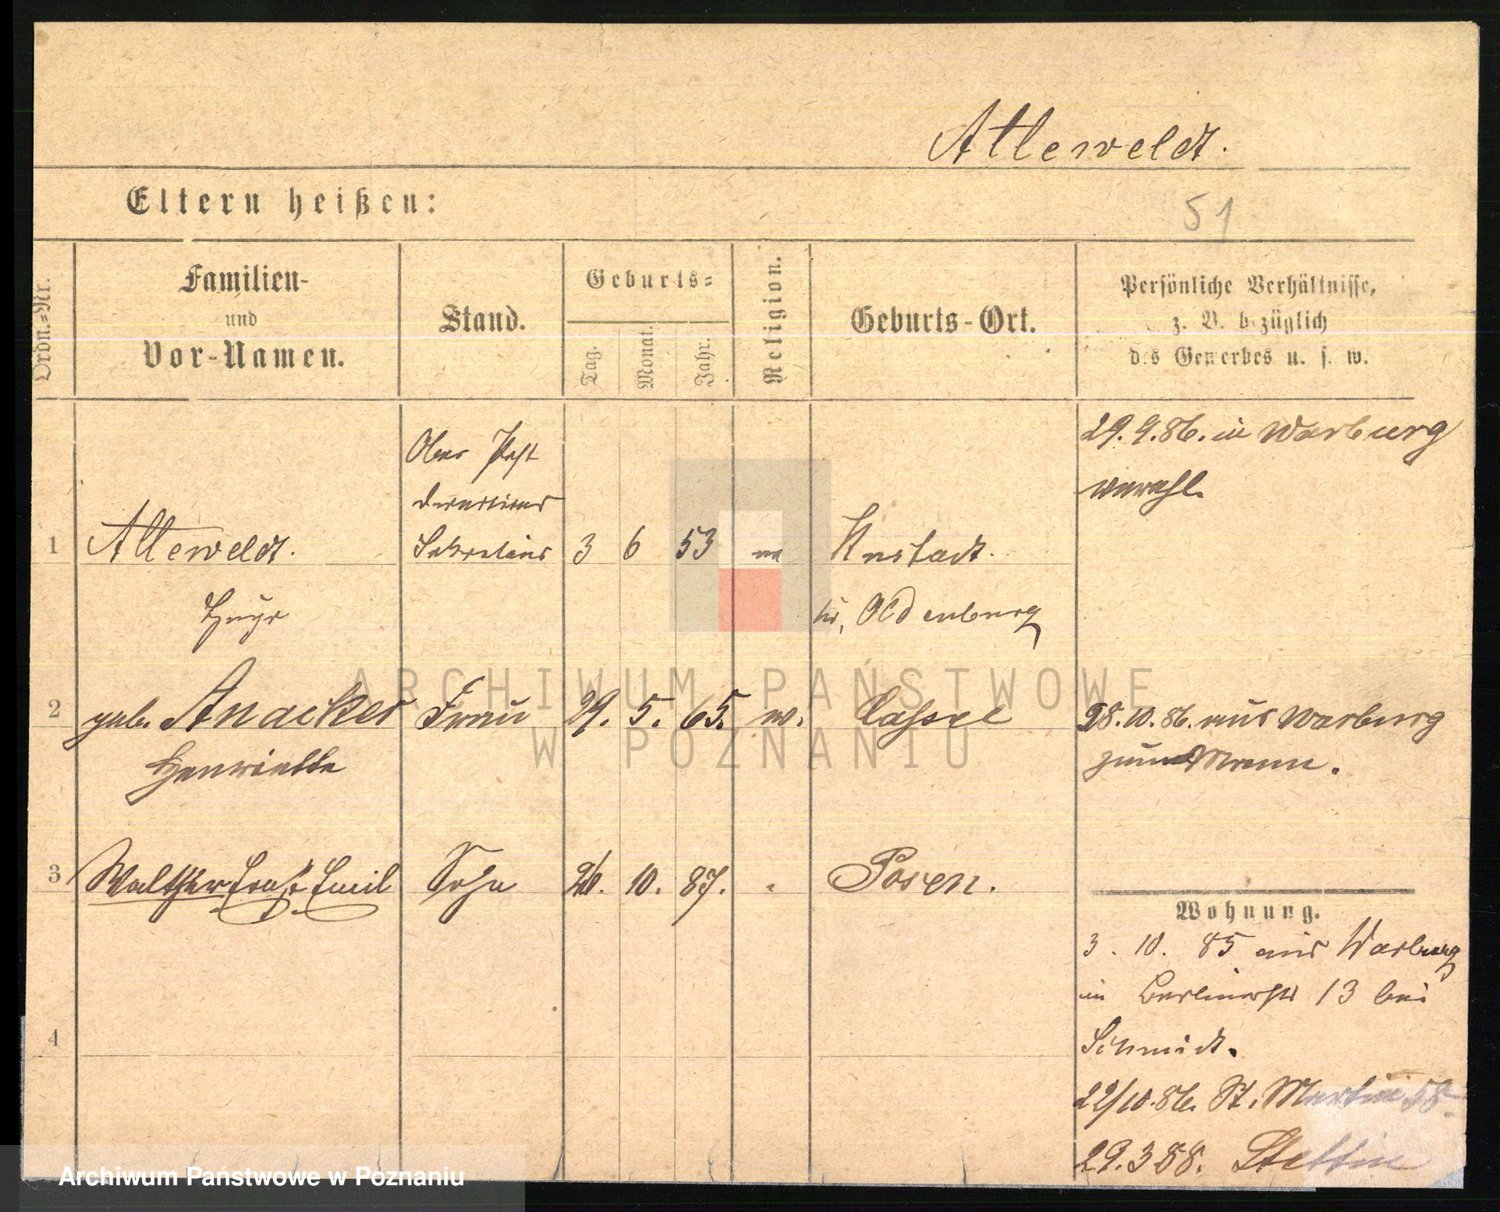 Alleweldt.
Eltern heißen:
51
Ordn.=Nr.
Familien-
und
Vor-Namen.
Stand.
Geburts=
Tag.
Monat.
Jahr.
Religion.
Geburts-Ort.
Persönliche Verhältnisse,
z. B. bezüglich
des Gewerbes u. s. w.
29. 9. 86. in Warburg
verehl.
Ober Post
directions
1 Alleweldt. Sekretair 3 6 53 ev Neustadt.
Hugo Oldenburg
2 geb. Anacker Frau 29. 5. 65. ev. Cassel 28. 10. 86. aus Warburg
Henriette zum Mann.
3 Walther Ernst Emil Sohn 26. 10. 87. Posen.
Wohnung.
3. 10. 85 aus Warburg
in Berlinerstr 13 bei
4
Schmidt.
22/10. 86. St. Martin 58.
29. 3 88. Stettin
ARCHIWUM PAŃSTWOWE
W POZNANIU
Archiwum Państwowe w Poznaniu